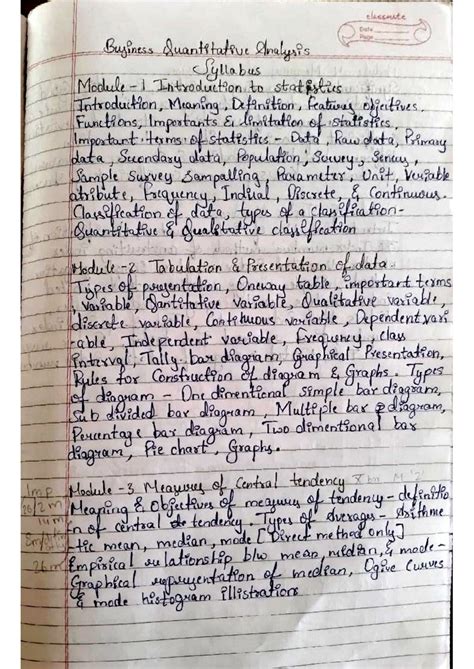 classmate
Date
Page
Business Quantitative Analysis
Syllabus
Module - 1 Introduction to statistics
Introduction, Meaning, Definition, Features objectives.
Functions, Importants & limitation of statistics.
Important terms of statistics - Data, Raw data, Primary
data, Secondary data, Population, Survey, Sensus,
Sample survey Sampalling, Parameter, Unit, Veriable
atribute, Frequency, Indiual, Discrete, & Continuous.
Classification of data, types of a clasification-
Quantitative & Qualitative classification
Module - 2 Tabulation & Presentation of data
Types of presentation, Oneway table, important terms
, Variable, Qantitative variable, Qualitative variable,
discrete variable, Continuous variable, Dependent vari
-able, Independent variable, Frequency, class
Interval, Tally bar diagram, Graphical Presentation,
Rules for Construction of diagram & Graphs. Types
of diagram - One dimentional simple bar diagram,
Sub divided bar diagram, Multiple bar diagram,
Percentage bar diagram, Two dimentional bar
diagram, Pie chart, Graphs.
Imp Module - 3 Measures of Central tendency
Meaning & Objectives of measures of tendency - definitio
-n of central tendency. Types of Averages - Arithme
-tic mean, median, mode [Direct method only]
26m Empirical relationship b/w mean, median, & mode -
Graphical representation of median, Ogive Curves
& mode histogram illistrations